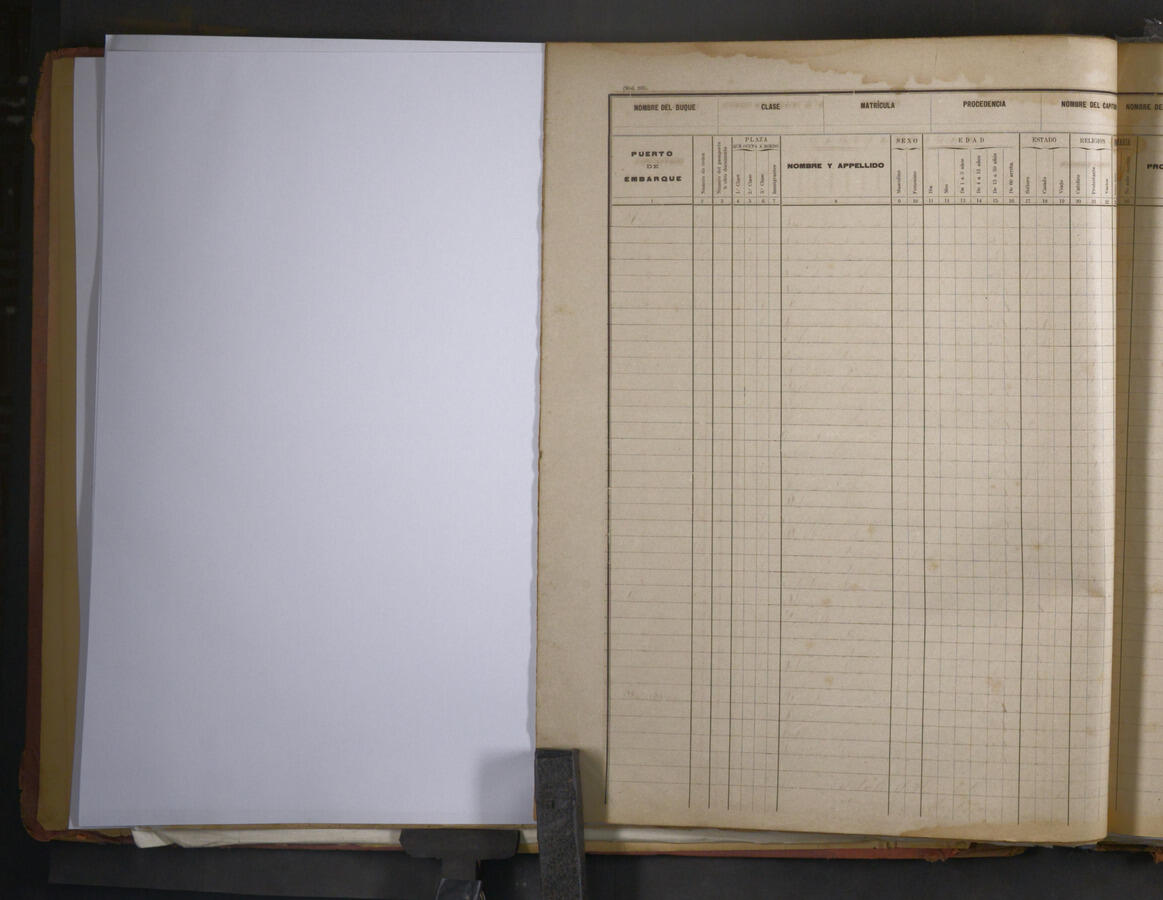 NOMBRE DEL BUQUE CLASE MATRÍCULA PROCEDENCIA NOMBRE DEL CAPIT NOMBRE DE
PUERTO
DE
EMBARQUE
Número de orden
PLAZA
QUE OCUPA A BORDO
1.ª Clase
2.ª Clase
3.ª Clase
Inmigrantes
NOMBRE Y APPELLIDO
SEXO
Masculino
Femenino
EDAD
Dia
Mes
De 1 a 3 años
De 4 a 12 años
De 13 a 59 años
De 60 arriba
ESTADO
Soltero
Casado
Viudo
RELIGION
Católica
Protestante
Varias
PRO
1 2 3 4 5 6 7 8 9 10 11 12 13 14 15 16 17 18 19 20 21 22